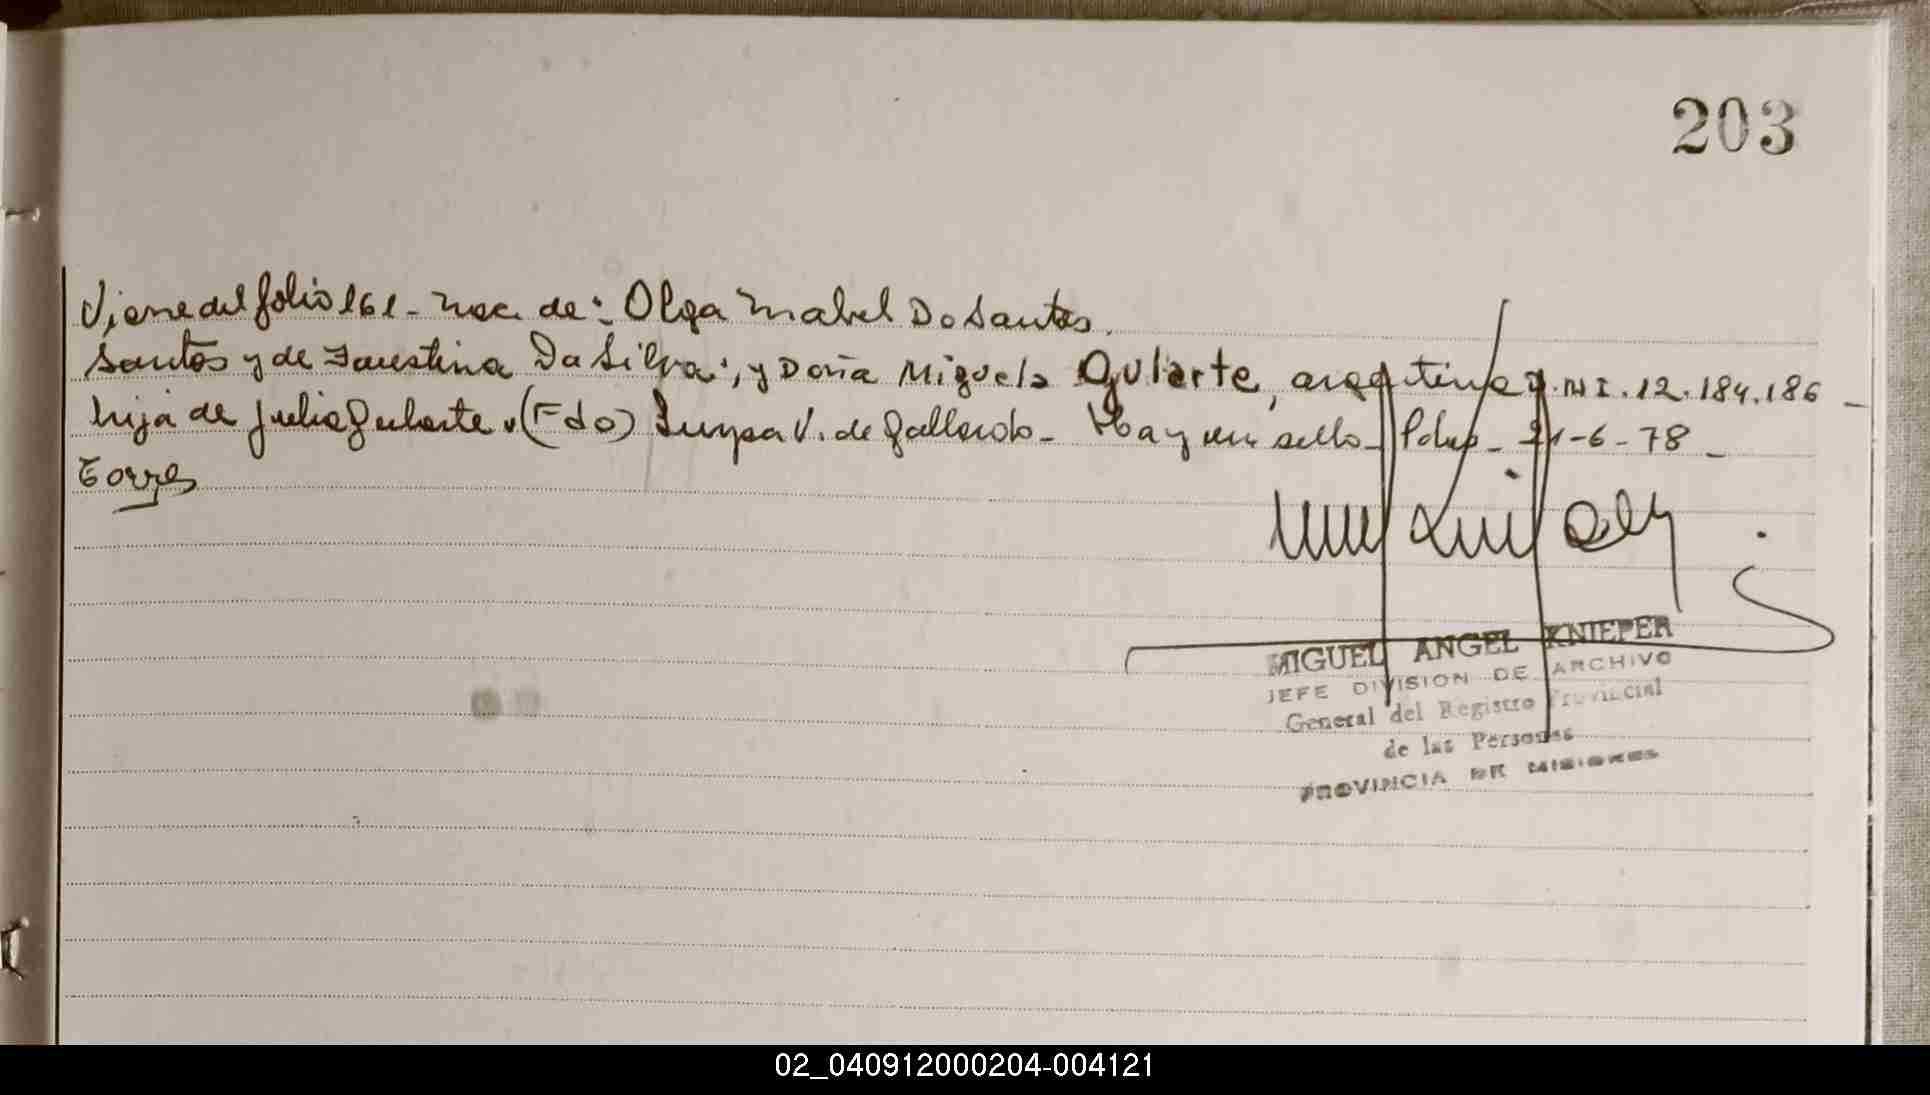 203
Viene del folio 161 - nac. de: Olga Mabel Do Santos.
Santos y de Faustina Da Silva; y Doña Miguela Gularte, argentina D.N.I. 12.184.186 -
hija de Julio Gularte. (Fdo) V. de Gallardo - Hay un sello - Pdas - 21-6-78 -
Torres
MIGUEL ANGEL KNIEPER
JEFE DIVISION DE ARCHIVO
General del Registro Provincial
de las Personas
PROVINCIA DE MISIONES
02_040912000204-004121